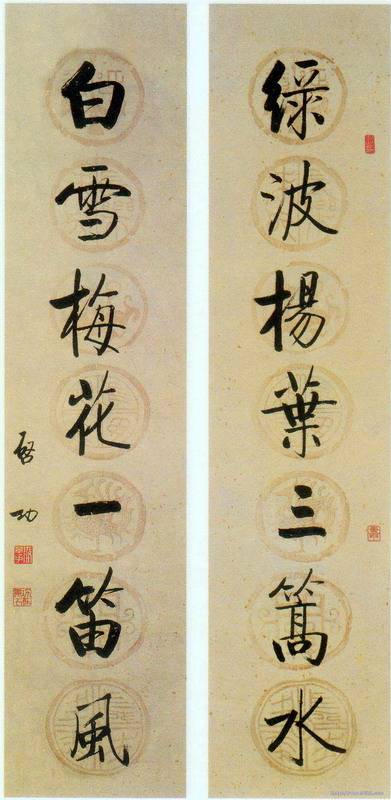 綠波楊葉三篙水
白雪梅花一笛風
啓功